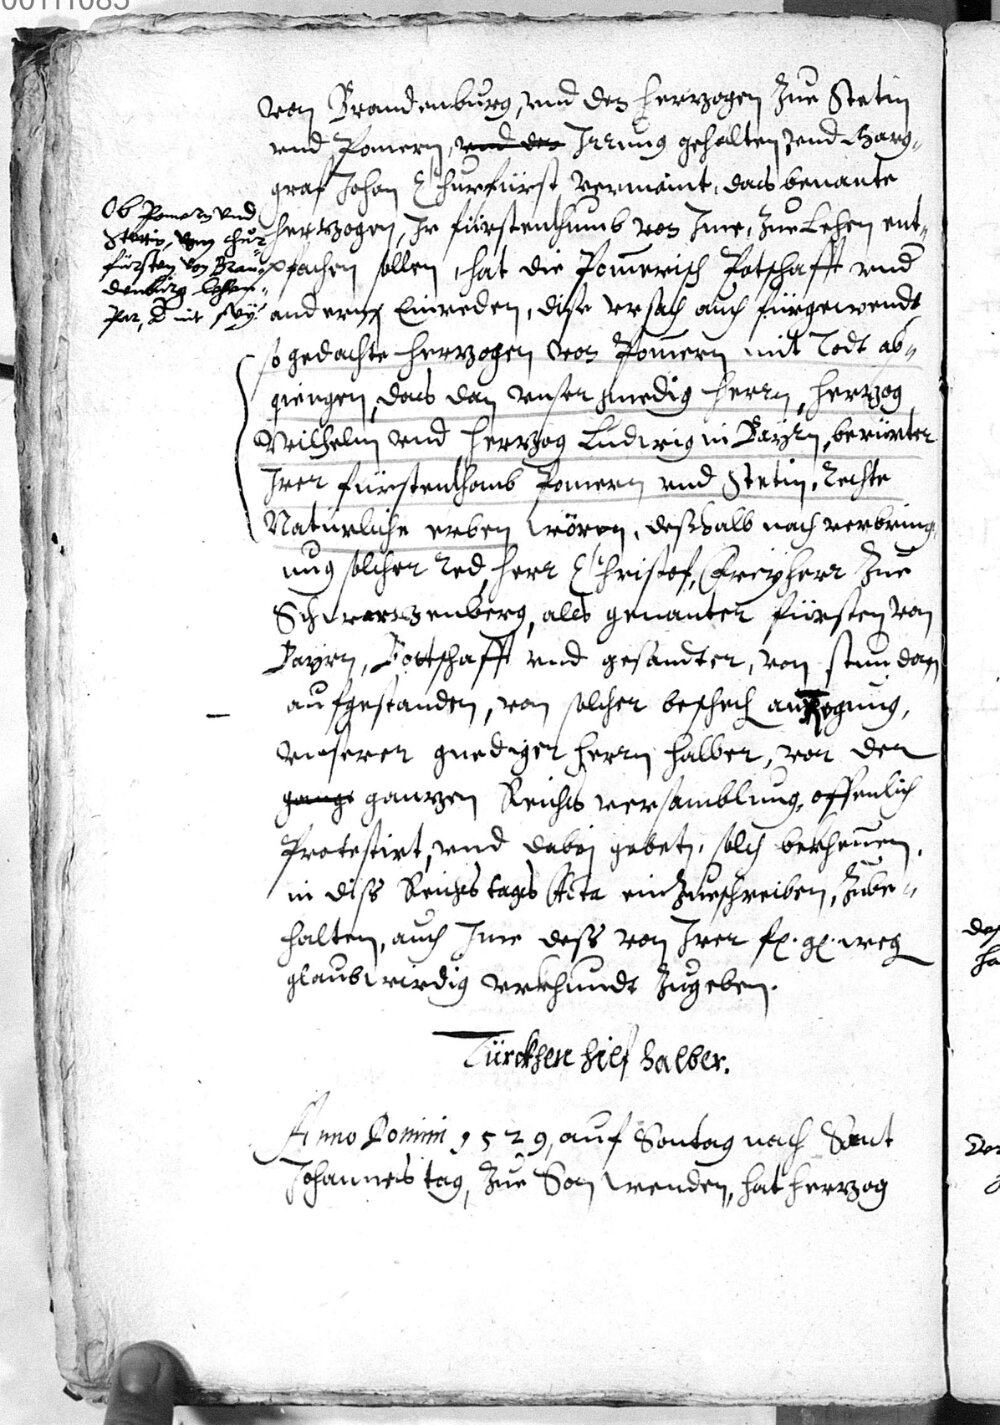 von Brandenburg, vnd den herzogen Zue Stetin
vnd Pomern, vnd der Irrung gehalten, vnd Marg-
graf Johan Churfürst vermaint, das benante
herzogen, Ir fürstenthumb von Ime, Zue Lehen ent-
pfachen sollen, hat die Pomerisch Potschafft vnd
andern Einreden, dise vrsach auch fürgewendt
so gedachte herzogen von Pomern mit Todt ab-
giengen, das dan vnser gnedig herrn, herzog
Wilhelm vnd herzog Ludwig in Bayrn, berürter
Irer fürstenthomb Pomern vnd Stetin, Rechte
Natürliche erben wören, desshalb nach verbring-
ung solcher Red, herr Christof, Freyherr Zue
Schwarzenberg, alls genanter fürsten von
Bayrn, Bottschafft vnd gesandter, von stundan
aufgestanden, von solcher beschech anzogung,
vnserer gnediger herrn halber, vor der
gantze ganzen Reichs versamblung, offenlich
Protestirt, vnd dabej gebetn, solch bekhennen,
in diss Reichstags Acta einzueschreiben, Zube-
halten, auch Ime dess von Irer fl. gl. weg
glaubwirdig vrkhundt Zugeben.
Ob Pomern vnd
Stetin, von Chur-
fürsten von Bran-
denburg lehen-
Par, oder nit sey.
Türckhen hilf halber.
Anno Domini 1529, auf Sontag nach Sant
Johannes tag, Zue Son wenden, hat herzog
00111085